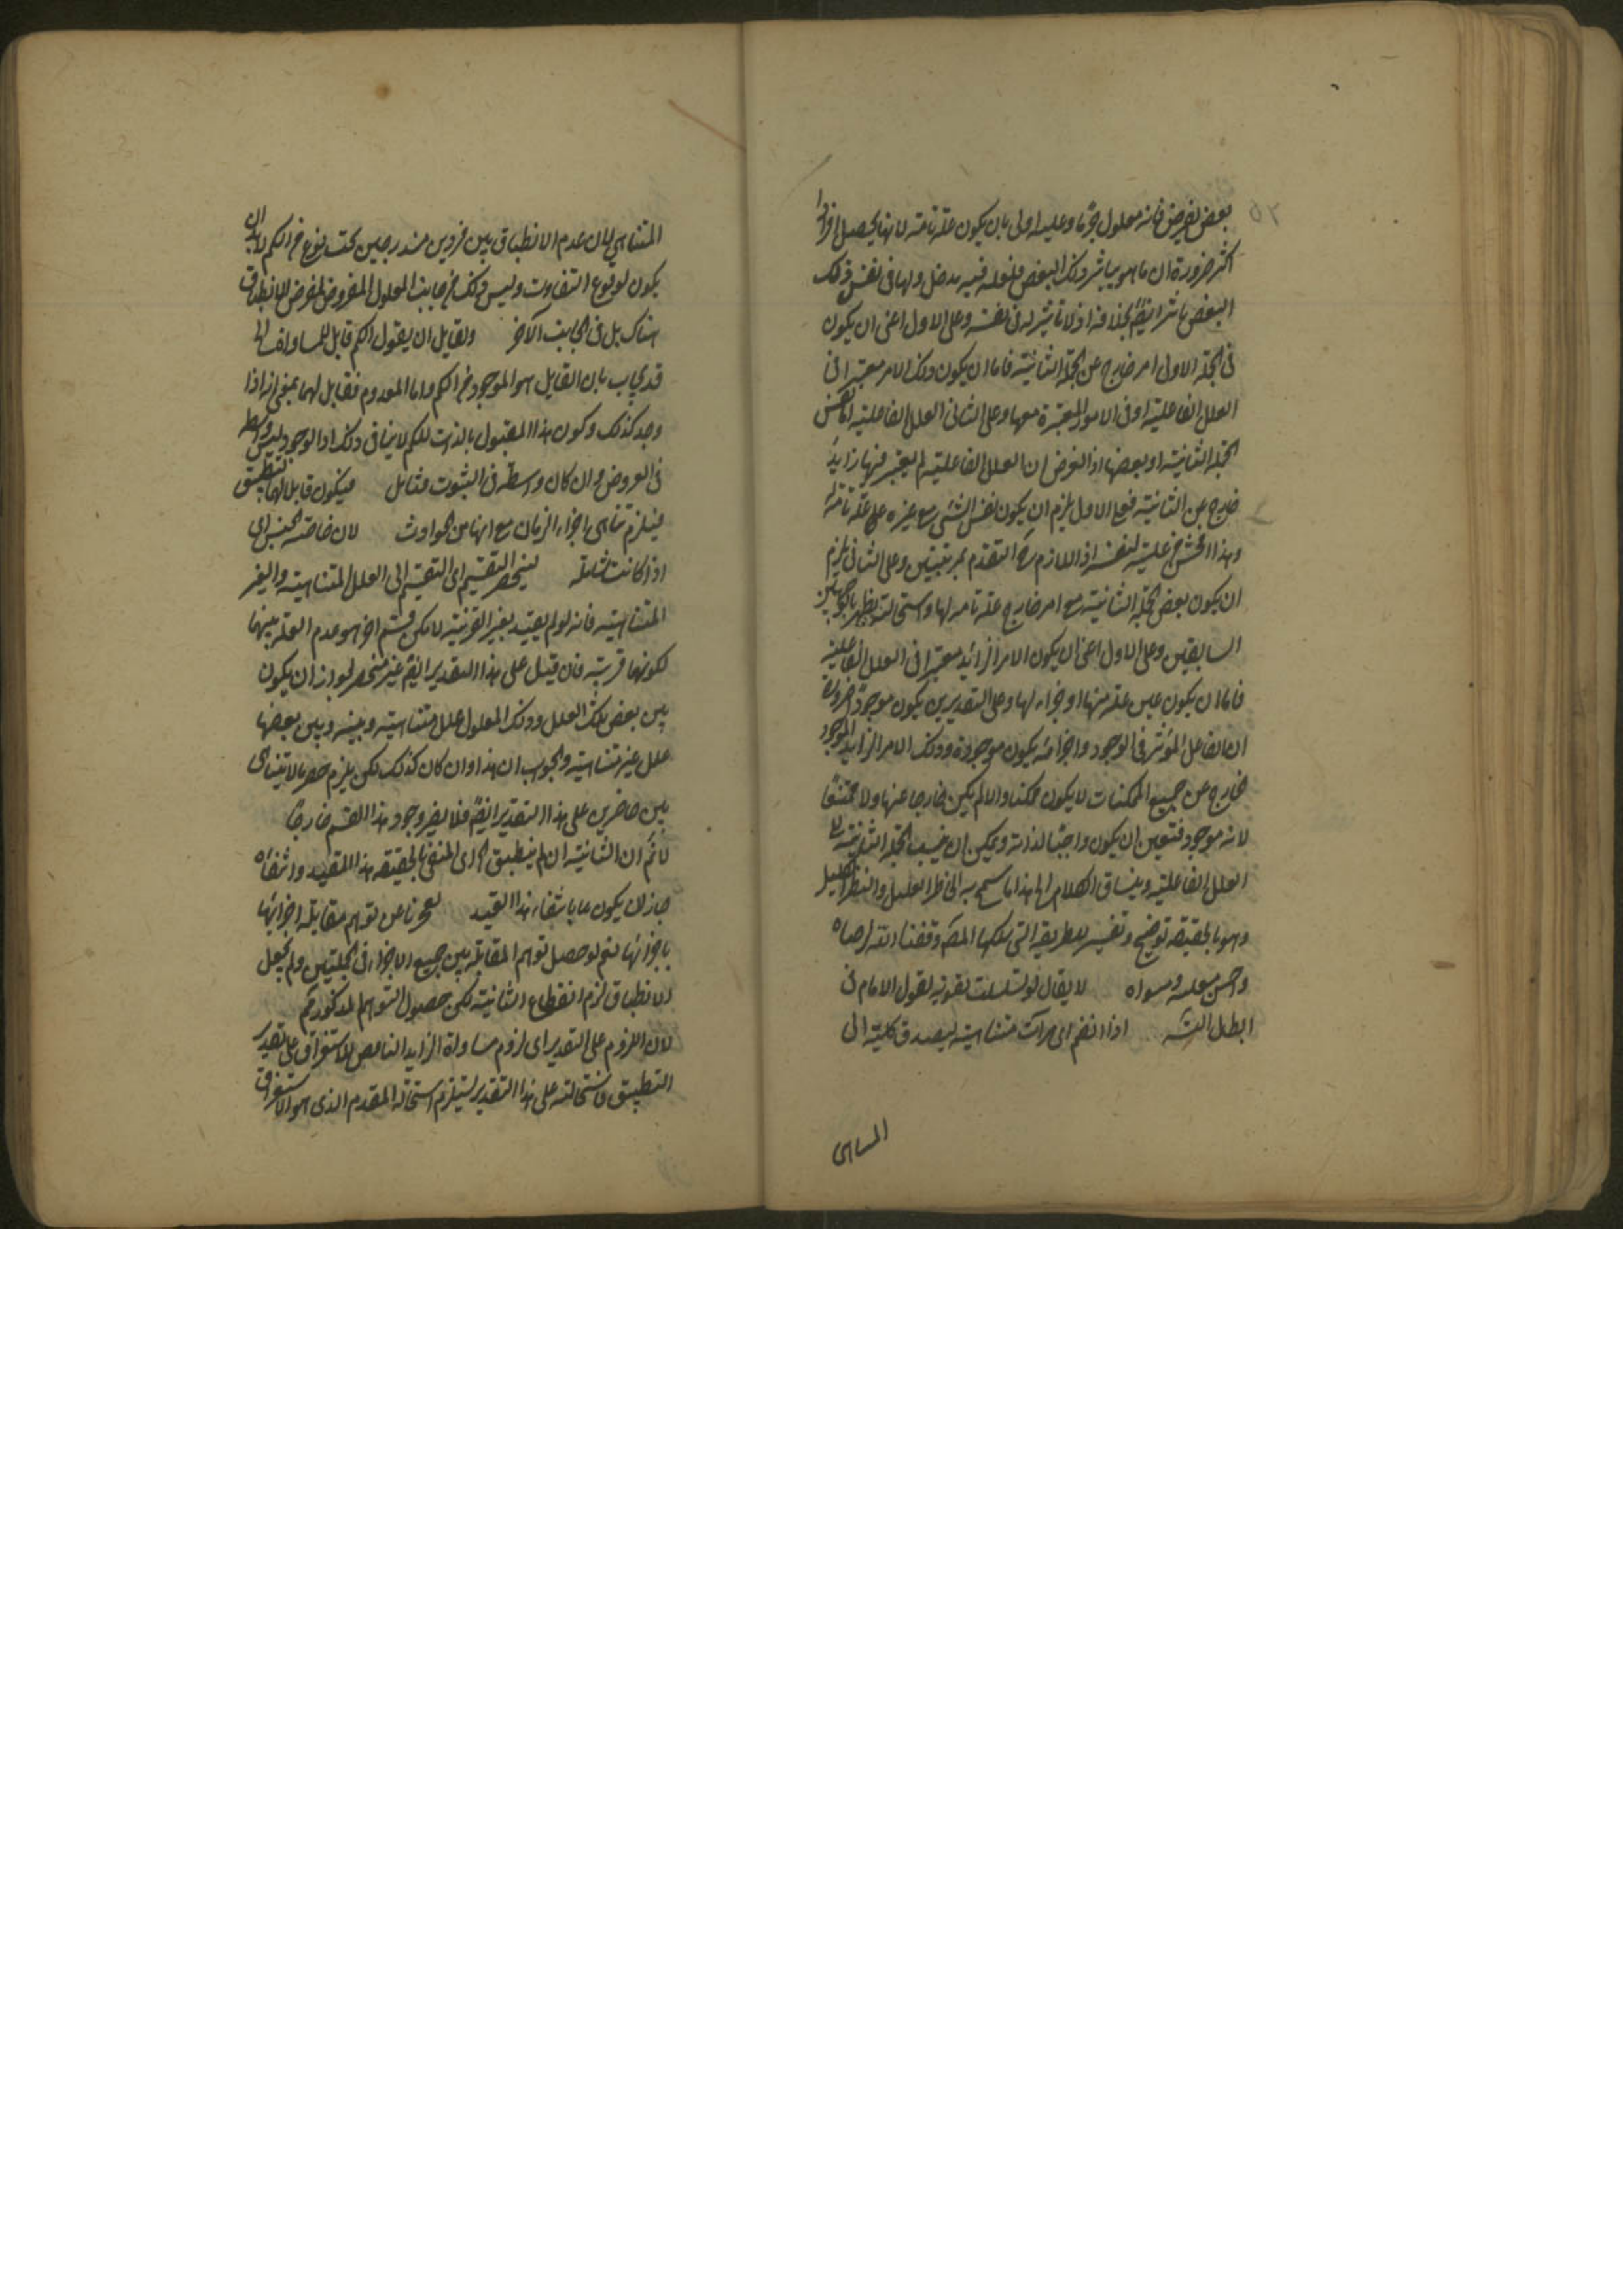 بعض يفرض فانه معلول جزءا وعليه اولى بان يكون علة تامة لانها يحصل افراد
اكثر ضرورة ان ما هو يباشر ذلك البعض فلعله فيه مدخل ولها فى نفس ذلك
البعض تاثير ايضا بخلافه اذ لا تاثير له فى نفسه وعلى الاول اعنى ان يكون
فى الجملة الاولى امر خارج عن الجملة الثانية فاما ان يكون ذلك الامر معتبرا فى
العلل الفاعلية او فى الامور المعتبرة معها وعلى الثانى العلل الفاعلية اما نفس
الجملة الثانية او بعضها اذ الفرض ان العلل الفاعلية لم يعتبر فيها زايد
خارج عن الثانية فعلى الاول يلزم ان يكون نفس الشئ مع غيره علة تامة له
وهذا افحش من علية لنفسه اذ اللازم ح التقدم بمرتبتين وعلى الثانى يلزم
ان يكون بعض الجملة الثانية مع امر خارج علة تامة لها واستحالته يظهر بالوجهين
السابقين وعلى الاول اعنى ان يكون الامر الزائد معتبرا فى العلل الفاعلية
فاما ان يكون عين علة منها او جزء لها وعلى التقديرين يكون موجودا ضرورة
ان الفاعل المؤثر فى الوجود واجزائه يكون موجودة وذلك الامر الزايد الموجود
خارج عن جميع الممكنات لا يكون ممكنا والا لم يكن خارجا عنها ولا ممتنعا
لانه موجود فتعين ان يكون واجبا لذاته ويمكن ان ينسب الجملة الثانية الى
العلل الفاعلية وينساق الكلام الى هذا ما سمح به الخاطر العليل والنظر الكليل
وهو بالحقيقة توضيح وتفسير للطريقة التى سلكها المص وفقنا الله لرضاه
واحسن معلمه ومسواه لا يقال لو تسلسلت تقوية لقول الامام فى
ابطال التس اذا انضم اى مرات متناهية ليصدق كلية الى
المتناهى
المتناهى لان عدم الانطباق بين فردين مندرجين تحت نوع من الكم لابد ان
يكون لوقوع التفاوت وليس ذلك من جانب المعلول المفروض لفرض الانطباق
هناك بل فى الجانب الآخر ولقايل ان يقول الكم قابل للمساواة الى
قد يجاب بان القابل هو الموجود من الكم واما المعدوم فقابل لهما بمعنى انه اذا
وجد كذلك وكون هذا المقبول بالذات للكم لا ينافى ذلك اذ الوجود ليس واسطة
فى العروض وان كان واسطة فى الثبوت فتامل فيكون قابلا لهما لتطبيق
فيلزم تناهى اجزاء الزمان مع انها من الحوادث لان خاصة الجنس اى
اذا كانت شاملة ليحصر التقسيم اى التقسيم الى العلل المتناهية والغير
المتناهية فانه لو لم يقيد بغير القريبة لامكن قسم اخر هو عدم العلة بينهما
لكونها قريبة فان قيل على هذا التقدير ايضا غير منحصر لجواز ان يكون
بين بعض تلك العلل وذلك المعلول علل متناهية وبينه وبين بعضها
علل غير متناهية والجواب ان هذا وان كان كذلك لكن يلزم حصر ما لا يتناهى
بين حاضرين على هذا التقدير ايضا فلا يضر وجود هذا القسم خارجا
لانم ان الثانية ان لم ينطبق اى المنفى بالحقيقة هذا المقيد وانتفاه
جاز ان يكون بانتفاء هذا القيد لعجزنا عن توهم مقابلة اجزائها
باجزائها نعم لو حصل توهم المقابلة بين جميع الاجزاء فى الجملتين ولم يجعل
الانطباق لزم انقطاع الثانية لكن حصول التوهم المذكور مم
لان اللزوم على التقدير اى لزوم مساواة الزايد الناقص للاستغراق على تقدير
التطبيق فاستحالته على هذا التقدير يستلزم استحالة المقدم الذى هو الاستغراق